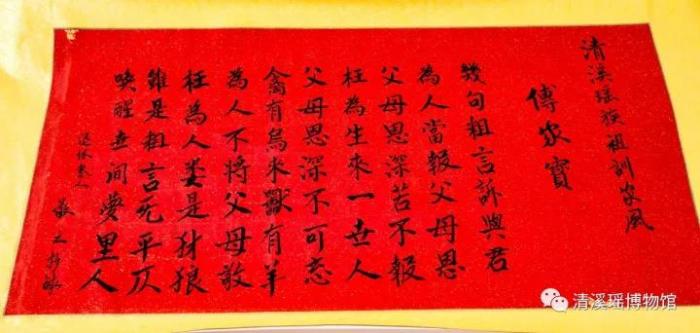 清溪瑶族祖訓家風
傳家寶
幾句粗言訴與君
為人當報父母恩
父母恩深苦不報
枉為生來一世人
父母恩深不可忘
禽有烏來獸有羊
為人不將父母敬
枉為人类是豺狼
雖是粗言无平仄
喚醒世間夢里人
退休老人
清溪瑶博物馆